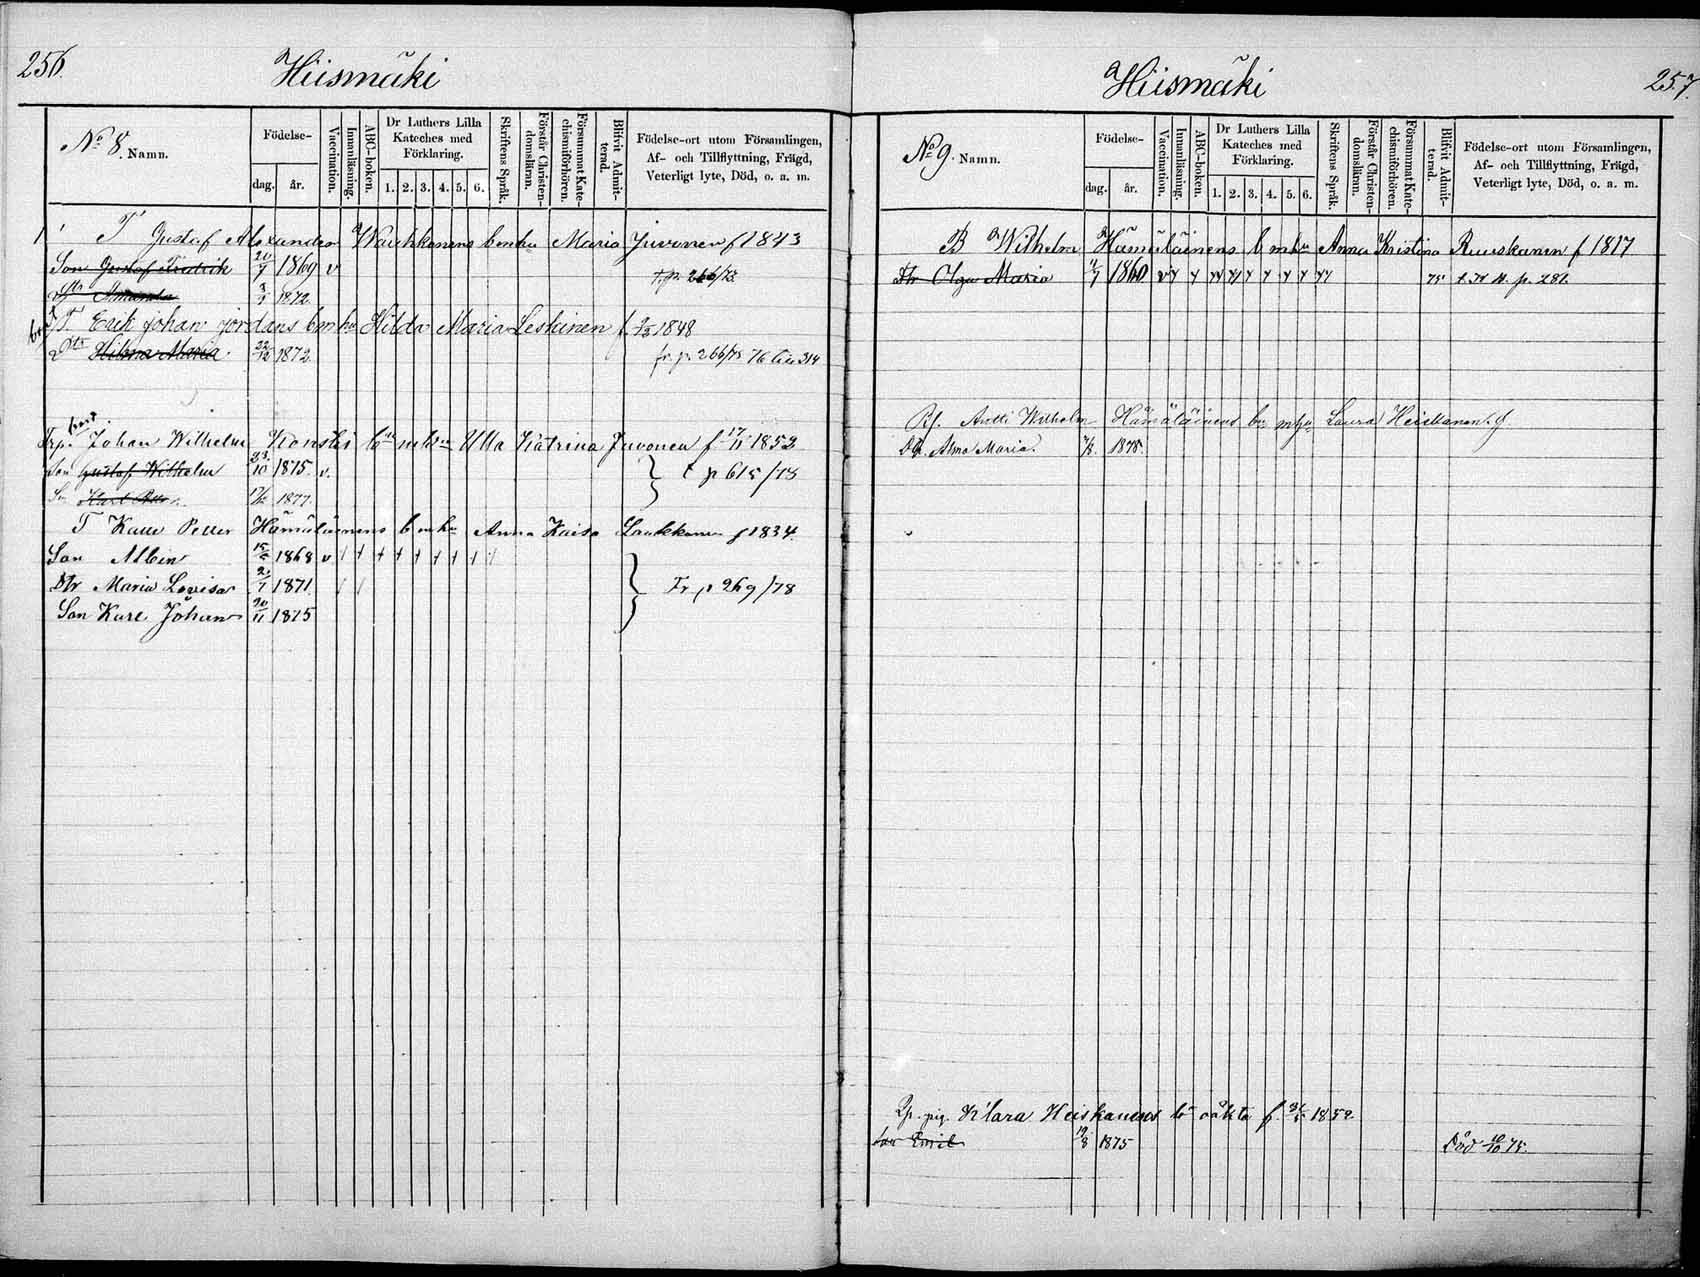 256.
Hiismäki
No 8. Namn.
Födelse-
dag. år.
Vaccination.
Innanläsning.
ABC-boken.
Dr Luthers Lilla Kateches med Förklaring.
1. 2. 3. 4. 5. 6.
Skriftens Språk.
Förstår Christendomsläran.
Försummat Katechismiförhören.
Blifvit Admitterad.
Födelse-ort utom Församlingen,
Af- och Tillflyttning, Frägd,
Veterligt lyte, Död, o. a. m.
T Gustaf Alexander Wauhkonens b m hu Maria Juvonen f 1843
Son Gustaf Fredrik 1869 v t. p. 266/73.
Amanda 1872
T Erik Johan Jordans b m hu Hilda Maria Leskinen f 1848
Dtr Hilma Maria 22/12 1872 fr. p. 266/73 76 314
Johan Wilhelm b m h Ulla Katrina Juvonen f 17/11 1852
Son Gustaf Wilhelm 23/10 1875. v. t p 615/78
1877.
T Kalle Petter Hämäläinens b m hu Anna Kaisa Laukkanen f 1834.
Son Albin 1868 v
Dtr Maria Lovisa 1871. Fr p 269/78
Son Karl Johan 30/11 1875
Hiismäki
257.
No 9. Namn.
Födelse-
dag. år.
Vaccination.
Innanläsning.
ABC-boken.
Dr Luthers Lilla Kateches med Förklaring.
1. 2. 3. 4. 5. 6.
Skriftens Språk.
Förstår Christendomsläran.
Försummat Katechismiförhören.
Blifvit Admitterad.
Födelse-ort utom Församlingen,
Af- och Tillflyttning, Frägd,
Veterligt lyte, Död, o. a. m.
B Wilhelm Hämäläinens b m hu Anna Kristina Ruuskanen f 1817
Dtr Olga Maria 1860 75 p. 281.
Antti Wilhelm Hämäläinens b m hu Laura Heiskanen f.
Alma Maria. 1878.
pig. Klara Heiskanens oäkta f. 1852
Son Emil 19/8 1875 Död 75.